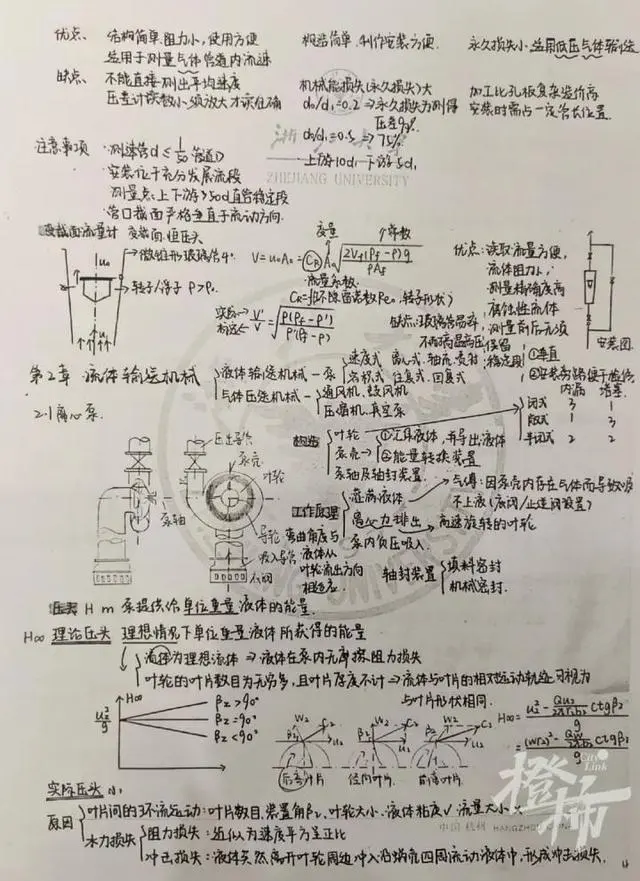 优点、 结构简单.阻力小,使用方便 构造简单.制作安装方便. 永久损失小.适用低压气体输送
适用于测量气体管道内流速
缺点、 不能直接测出平均速度 机械能损失(永久损失)大 加工比孔板复杂造价高
压差计读数小.须放大才读准确 d₀/d₁=0.2 ⇒永久损失为测得压差90% 安装时需占一定管长位置.
d₀/d₁=0.5 ⇒ 75%
注意事项 ·测速管d ≤ 1/50 管道D 上游10d₁ 下游5d₁
ZHEJIANG UNIVERSITY
·安装位于充分发展流段
测量点:上下游>50d直管稳定段
·管口截面严格垂直于流动方向.
变截面流量计 变截面.恒压头 变量 常数
→微锥形玻璃管4°. V = u₀A₀ = C_R A₀ √(2V_f(ρ_f-ρ)g / ρA_f)
→转子/浮子 ρ_f>ρ. 流量系数.
C_R=f(不限 雷诺数Re₀.转子形状)
实际→ V'/V = √(ρ(ρ_f-ρ') / ρ'(ρ_f-ρ))
标定←
优点:读取流量方便,
流体阻力小,
测量精确度高
腐蚀性流体
缺点:玻璃管易碎, 测量前后无须保留稳定段
不耐高温高压
安装图.
①垂直
②安装旁路便于检修
第2章 流体输送机械 液体输送机械—泵 速度式 离心式.轴流.
容积式 往复式.回复式
气体压送机械— 通风机.鼓风机
压缩机.真空泵
内漏 堵塞.
2-1离心泵. 闭式 3 1
敞式 1 3
半闭式 2 2
压出导管
泵壳
叶轮
泵轴
导轮
吸入导管
底阀
弯曲角度与液体从叶轮流出方向相适应
构造 叶轮
泵壳→ ①汇集液体,并导出液体
②能量转换装置
泵轴及轴封装置.
工作原理 灌满液体 →气缚:因泵壳内存在气体而导致吸不上液(底阀/止逆阀设置)
离心力排出→高速旋转的叶轮
泵内负压吸入.
轴封装置 填料密封
机械密封.
压头 H m 泵提供给单位重量液体的能量.
H∞ 理论压头 理想情况下单位重量液体所获得的能量
流体为理想流体 ⇒ 液体在泵内无摩擦阻力损失
叶轮的叶片数目为无穷多,且叶片厚度不计 ⇒流体与叶片的相对运动轨迹可视为与叶片形状相同.
H∞
u₂²/g
β₂>90°
β₂=90°
β₂<90°
w₂ c₂ β₂ u₂
后弯叶片 径向叶片. 前弯叶片
H∞ = (u₂² - Qu₂/2πr₂b₂ ctgβ₂)/g
= ((wr₂)² - Qw/2πb₂ ctgβ₂)/g
实际压头 小
原因 叶片间的环流运动:叶片数目.装置角β₂.叶轮大小.液体粘度√ 流量大小×
水力损失 阻力损失:近似为速度平方呈正比
冲击损失:液体突然离开叶轮周边冲入沿蜗壳四周流动液体中,形成冲击损失.
中国 杭州 HANGZHOU
橙柿
City Link
4